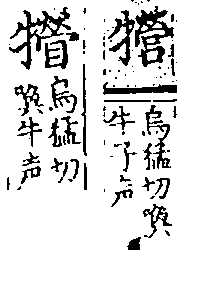 烏猛切喚
牛子声
烏猛切
喚牛声